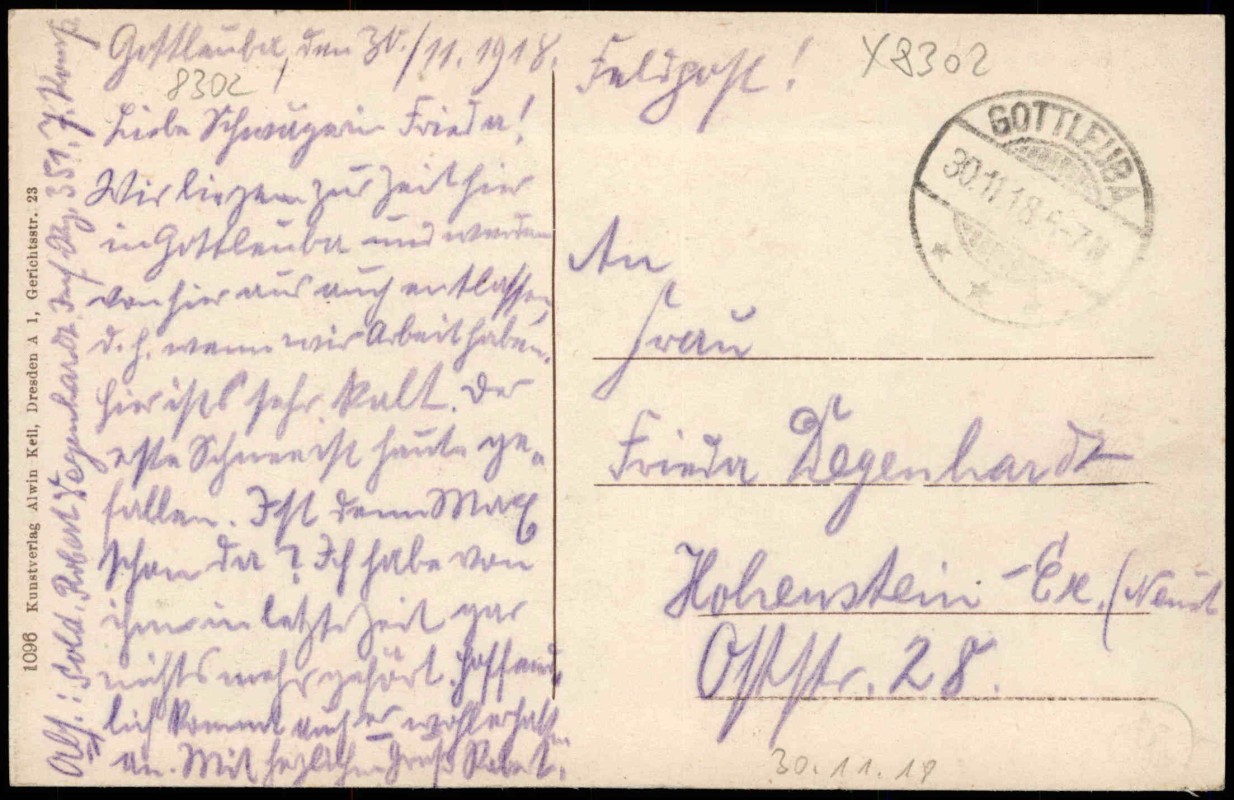 Gottleuba, den 30./11.1918.
8302
Liebe Schwägerin Frieda!
Wir liegen zur Zeit hier
in Gottleuba und werden
von hier aus auch entlassen,
d. h. wenn wir Arbeit haben.
Hier ists sehr kalt. Der
erste Schnee ist heute ge-
fallen. Ist denn Max
schon da? Ich habe von
ihm in letzte Zeit gar
nichts mehr gehört. Hoffent-
lich kommt auch er wohlerhalten
an. Mit herzlichen Gruß Robert.
Abs.: Sold. Robert Degenhardt, Inf. Rg. 351, 7. Komp.
1096 Kunstverlag Alwin Keil, Dresden A 1, Gerichtsstr. 23
Feldpost!
X8302
GOTTLEUBA
30.11.18.6-7N
An
Frau
Frieda Degenhardt
Hohenstein-Er. (Neust
Oststr. 28.
30.11.18